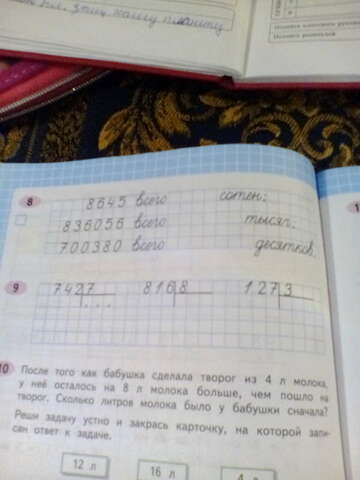 нашу планету
8
8645 всего сотен;
836056 всего тысяч;
700380 всего десятков.
9
7427 8168 1273
10 После того как бабушка сделала творог из 4 л молока,
у неё осталось на 8 л молока больше, чем пошло на
творог. Сколько литров молока было у бабушки сначала?
Реши задачу устно и закрась карточку, на которой запи-
сан ответ к задаче.
12 л 16 л 4 л